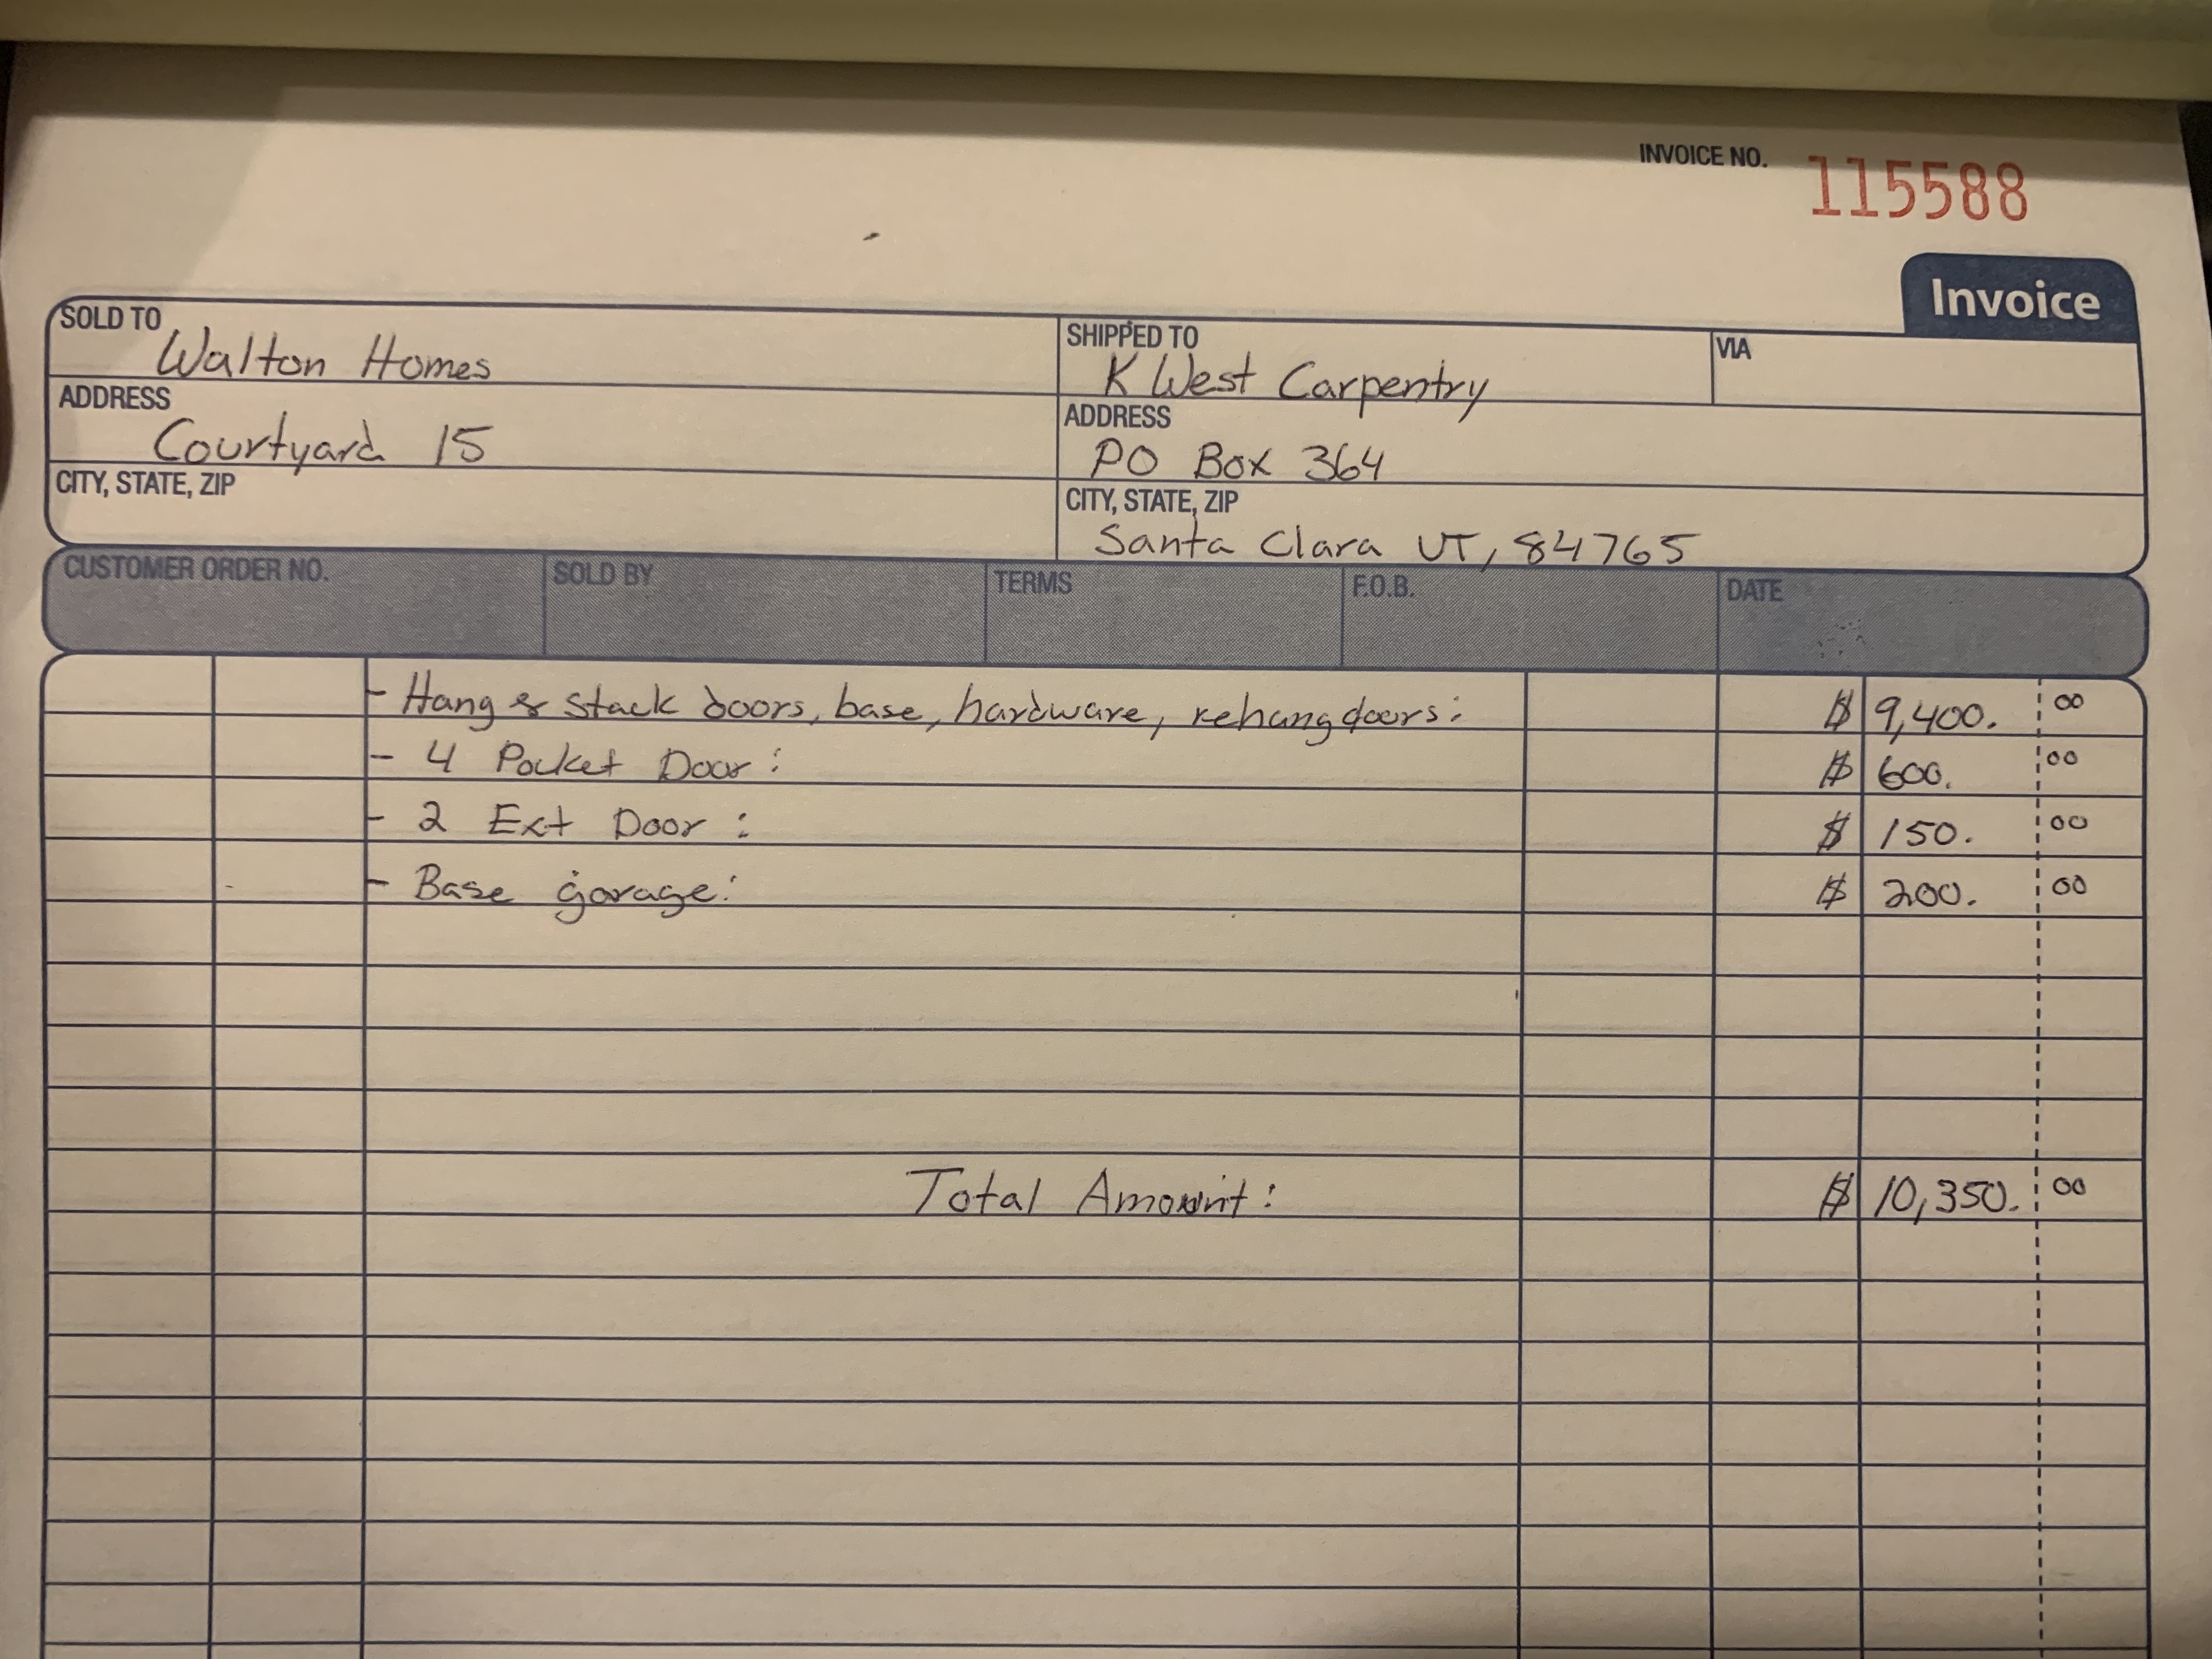 INVOICE NO. 115588
Invoice
SOLD TO
Walton Homes
ADDRESS
Courtyard 15
CITY, STATE, ZIP
SHIPPED TO
K West Carpentry
VIA
ADDRESS
PO Box 364
CITY, STATE, ZIP
Santa Clara UT, 84765
CUSTOMER ORDER NO. SOLD BY TERMS F.O.B. DATE
- Hang & Stack doors, base, hardware, rehang doors: $ 9,400. 00
- 4 Pocket Door: $ 600. 00
- 2 Ext Door: $ 150. 00
- Base garage: $ 200. 00
Total Amount: $ 10,350. 00